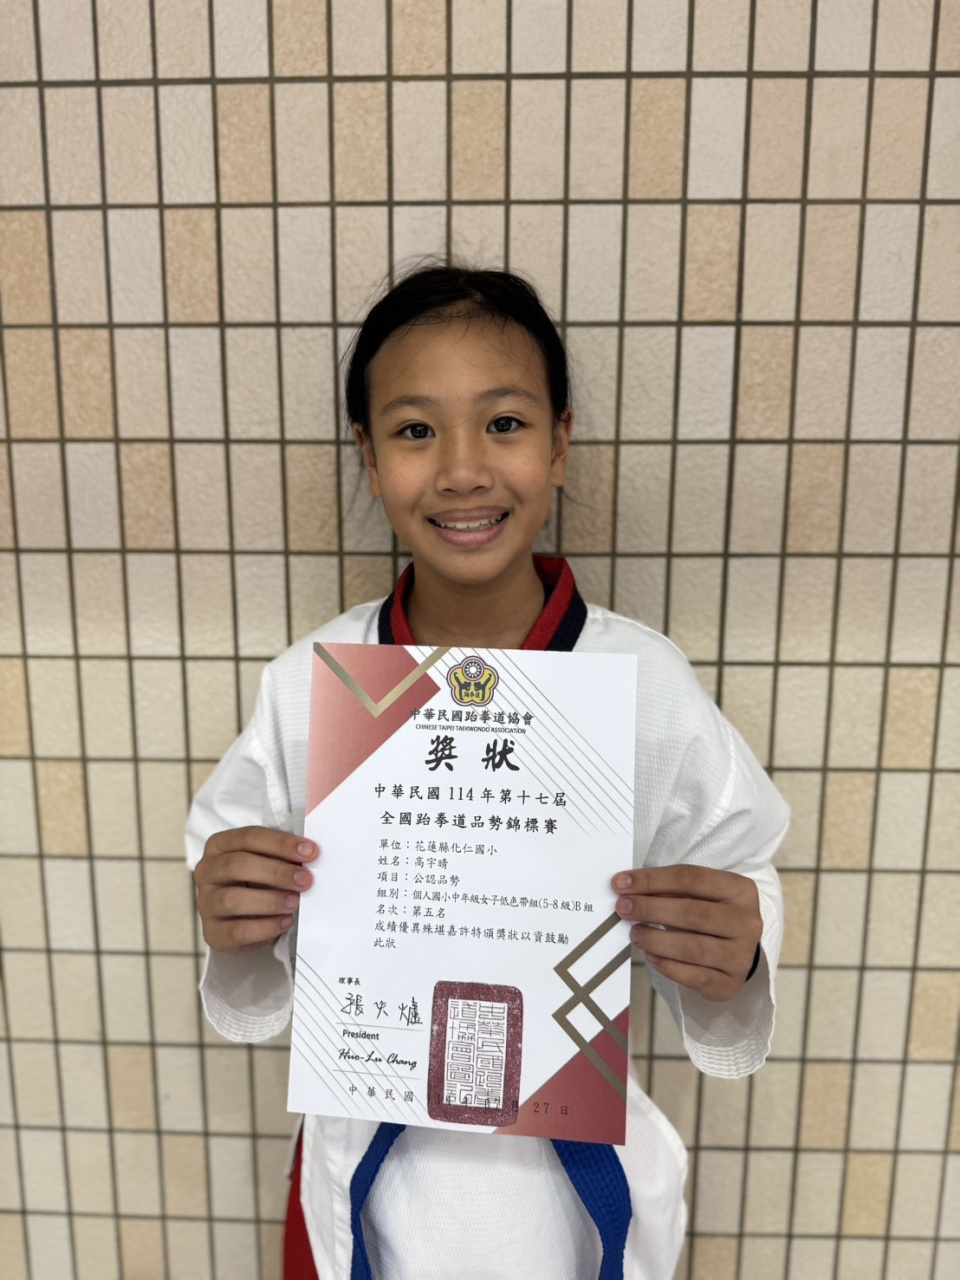 跆拳道
中華民國跆拳道協會
CHINESE TAIPEI TAEKWONDO ASSOCIATION
獎狀
中華民國 114 年第十七屆
全國跆拳道品勢錦標賽
單位：花蓮縣化仁國小
姓名：高宇晴
項目：公認品勢
組別：個人國小中年級女子低色帶組(5-8 級)B 組
名次：第五名
成績優異殊堪嘉許特頒獎狀以資鼓勵
此狀
理事長
張火爐
President
Huo-Lu Chang
中華民國跆拳道協會圖記
中 華 民 國 月 27 日